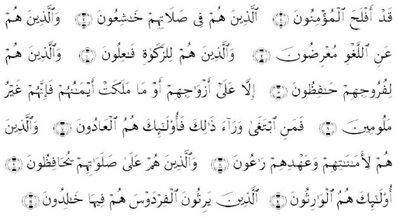 قَدْ أَفْلَحَ ٱلْمُؤْمِنُونَ ۝ ٱلَّذِينَ هُمْ فِى صَلَاتِهِمْ خَٰشِعُونَ ۝ وَٱلَّذِينَ هُمْ
عَنِ ٱللَّغْوِ مُعْرِضُونَ ۝ وَٱلَّذِينَ هُمْ لِلزَّكَوٰةِ فَٰعِلُونَ ۝ وَٱلَّذِينَ هُمْ
لِفُرُوجِهِمْ حَٰفِظُونَ ۝ إِلَّا عَلَىٰٓ أَزْوَٰجِهِمْ أَوْ مَا مَلَكَتْ أَيْمَٰنُهُمْ فَإِنَّهُمْ غَيْرُ
مَلُومِينَ ۝ فَمَنِ ٱبْتَغَىٰ وَرَآءَ ذَٰلِكَ فَأُو۟لَٰٓئِكَ هُمُ ٱلْعَادُونَ ۝ وَٱلَّذِينَ
هُمْ لِأَمَٰنَٰتِهِمْ وَعَهْدِهِمْ رَٰعُونَ ۝ وَٱلَّذِينَ هُمْ عَلَىٰ صَلَوَٰتِهِمْ يُحَافِظُونَ ۝
أُو۟لَٰٓئِكَ هُمُ ٱلْوَٰرِثُونَ ۝ ٱلَّذِينَ يَرِثُونَ ٱلْفِرْدَوْسَ هُمْ فِيهَا خَٰلِدُونَ ۝